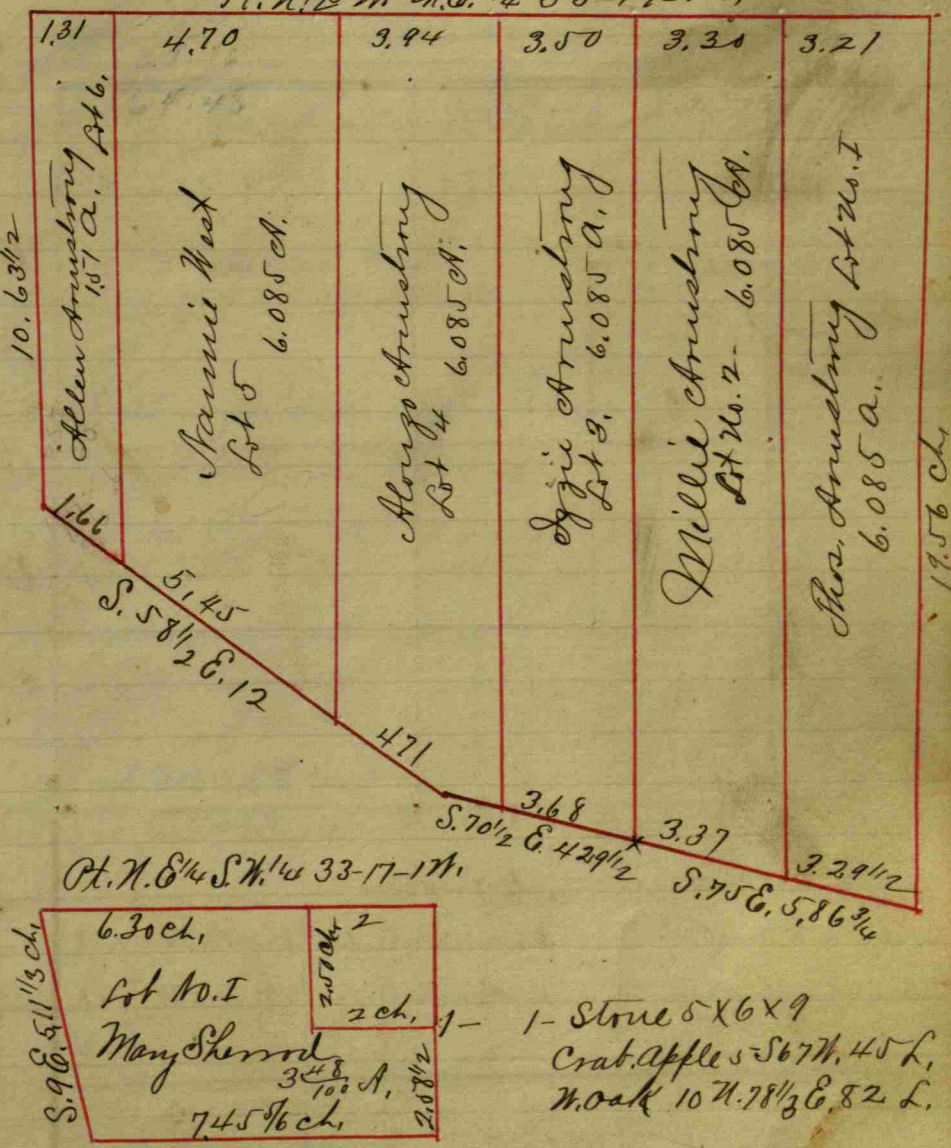 1.31 4.70 3.94 3.50 3.30 3.21
10.63 1/2
Allen Armstrong Lot 6.
1.57 A.
Nannie West
Lot 5 6.085 A.
Alonzo Armstrong
Lot 4 6.085 A.
Ozzie Armstrong
Lot 3. 6.085 A.
Millie Armstrong
Lot No. 2 - 6.085 A.
Thos. Armstrong Lot No. I
6.085 A.
19.56 ch.
1.66
5.45
S. 58 1/2 E. 12
4.71
3.68
S. 70 1/2 E. 4.29 1/2
3.37
3.29 1/2
S. 75 E. 5.86 3/4
Pt. N.E 1/4 S.W. 1/4 33-17-1W.
6.30 ch. 2
S. 9 E. 5.11 1/3 ch.
2.50 ch.
Lot No. I
2 ch. 1-
Mary Sherrod
3 48/100 A.
2.08 1/2
7.45 5/6 ch.
1- Stone 5 X 6 X 9
Crab. Apple 5 S 67 W. 45 L.
W. oak 10 N. 78 1/3 E. 82 L.